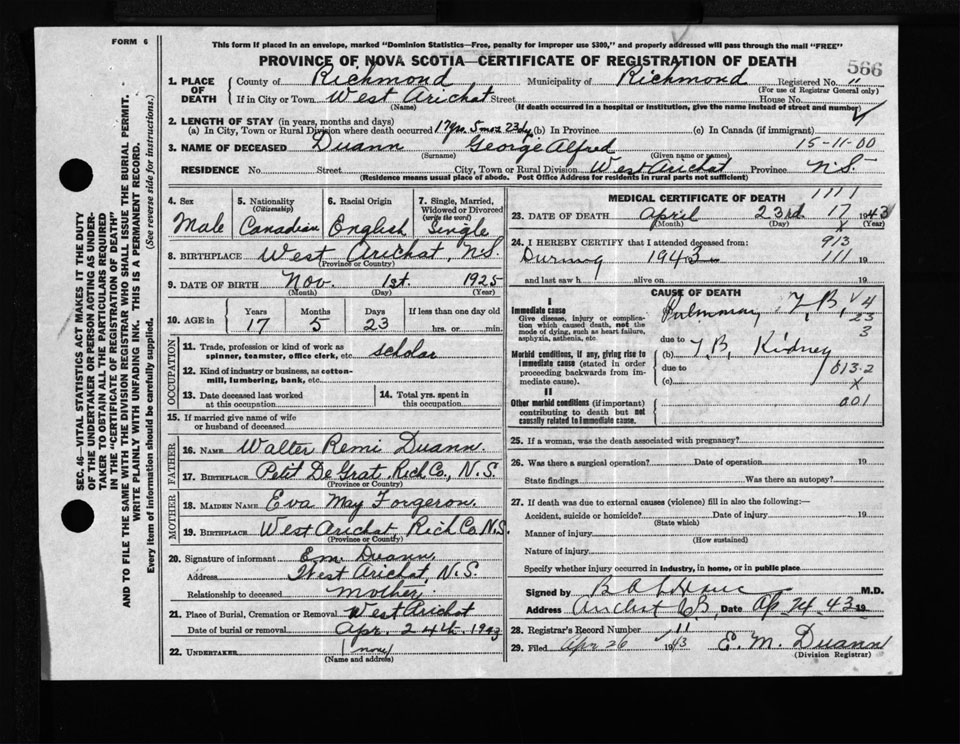 FORM 6
This form if placed in an envelope, marked "Dominion Statistics—Free, penalty for improper use $300," and properly addressed will pass through the mail "FREE"
PROVINCE OF NOVA SCOTIA—CERTIFICATE OF REGISTRATION OF DEATH
566
1. PLACE OF DEATH
County of Richmond Municipality of Richmond Registered No. 11
(For use of Registrar General only)
If in City or Town West Arichat Street House No.
(Name) (If death occurred in a hospital or institution, give the name instead of street and number)
2. LENGTH OF STAY (in years, months and days)
(a) In City, Town or Rural Division where death occurred 17 yrs. 5 mos 23 dy (b) In Province (c) In Canada (if immigrant)
3. NAME OF DECEASED Duann George Alfred 15-11-00
(Surname) (Given name or names)
RESIDENCE No. Street City, Town or Rural Division West Arichat Province N.S.
(Residence means usual place of abode. Post Office Address for residents in rural parts not sufficient)
4. Sex 5. Nationality (Citizenship) 6. Racial Origin 7. Single, Married, Widowed or Divorced (write the word)
Male Canadian English Single
8. BIRTHPLACE West Arichat, N.S.
(Province or Country)
9. DATE OF BIRTH Nov. 1st. 1925
(Month) (Day) (Year)
10. AGE in Years Months Days If less than one day old
17 5 23 hrs. or min.
OCCUPATION
11. Trade, profession or kind of work as spinner, teamster, office clerk, etc. scholar
12. Kind of industry or business, as cotton-mill, lumbering, bank, etc.
13. Date deceased last worked at this occupation
14. Total yrs. spent in this occupation
15. If married give name of wife or husband of deceased
FATHER
16. NAME Walter Remi Duann.
17. BIRTHPLACE Petit De Grat, Rich Co., N.S.
(Province or Country)
MOTHER
18. MAIDEN NAME Eva May Forgeron.
19. BIRTHPLACE West Arichat, Rich Co. N.S.
(Province or Country)
20. Signature of informant E.m. Duann
Address West Arichat, N.S.
Relationship to deceased mother.
21. Place of Burial, Cremation or Removal West Arichat
Date of burial or removal Apr. 24th. 1943
22. UNDERTAKER (none)
(Name and address)
MEDICAL CERTIFICATE OF DEATH
1111
23. DATE OF DEATH April 23rd 17 1943
(Month) (Day) (Year)
X
24. I HEREBY CERTIFY that I attended deceased from: 913
During 1943 111 19
and last saw h alive on 19
CAUSE OF DEATH
I
Immediate cause
Give disease, injury or complication which caused death, not the mode of dying, such as heart failure, asphyxia, asthenia, etc.
Pulmonary T.B. V4
23
3
due to
(b) T.B. Kidney
Morbid conditions, if any, giving rise to immediate cause (stated in order proceeding backwards from immediate cause).
due to 013.2
(c) X
II
Other morbid conditions (if important) contributing to death but not causally related to immediate cause.
001
25. If a woman, was the death associated with pregnancy?
26. Was there a surgical operation? Date of operation 19
State findings Was there an autopsy?
27. If death was due to external causes (violence) fill in also the following:—
Accident, suicide or homicide? Date of injury 19
(State which)
Manner of injury
(How sustained)
Nature of injury
Specify whether injury occurred in industry, in home, or in public place
Signed by M.D.
Address Arichat CB, Date Ap 24 43 19
28. Registrar's Record Number 11
29. Filed Apr 26 1943 E. M. Duann
(Division Registrar)
SEC. 46—VITAL STATISTICS ACT MAKES IT THE DUTY OF THE UNDERTAKER OR PERSON ACTING AS UNDERTAKER TO OBTAIN ALL THE PARTICULARS REQUIRED IN THE "CERTIFICATE OF REGISTRATION OF DEATH"
AND TO FILE THE SAME WITH THE DIVISION REGISTRAR WHO SHALL ISSUE THE BURIAL PERMIT.
WRITE PLAINLY WITH UNFADING INK. THIS IS A PERMANENT RECORD.
Every item of information should be carefully supplied. (See reverse side for instructions.)